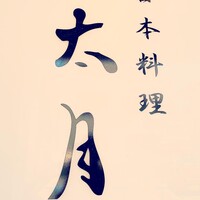 日本料理
太月